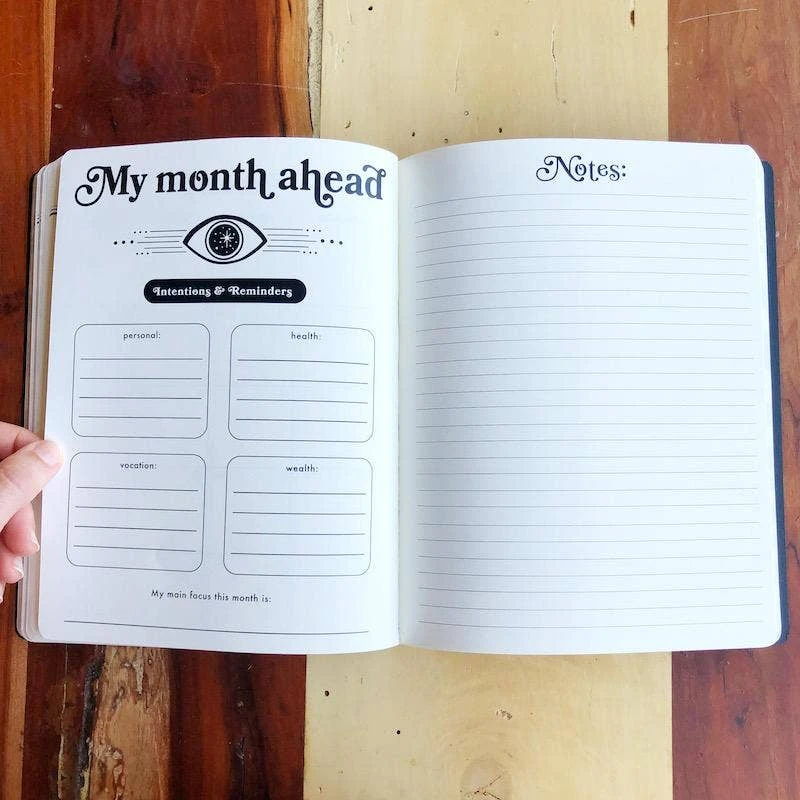 My month ahead
Intentions & Reminders
personal:
health:
vocation:
wealth:
My main focus this month is:
Notes: